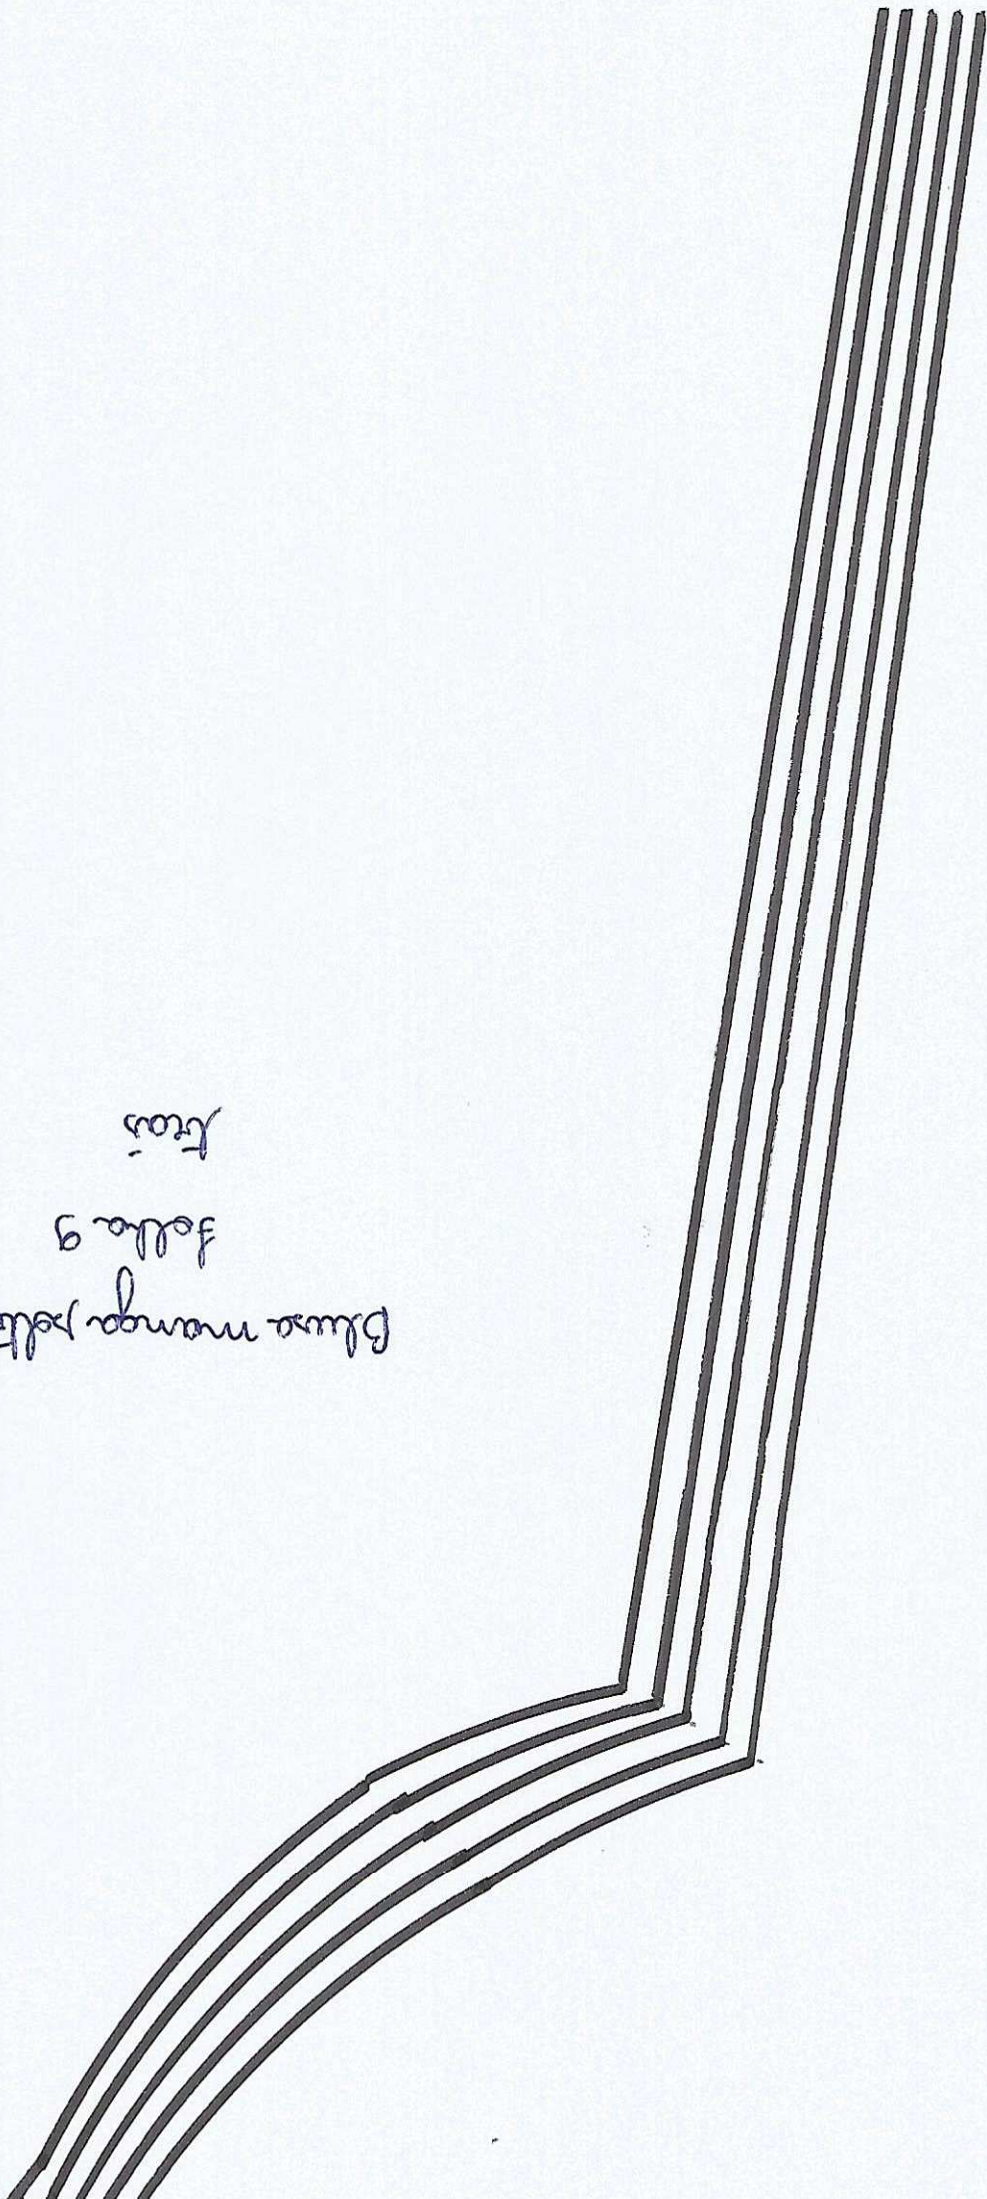 Blusa manga
Folha 9
Trás